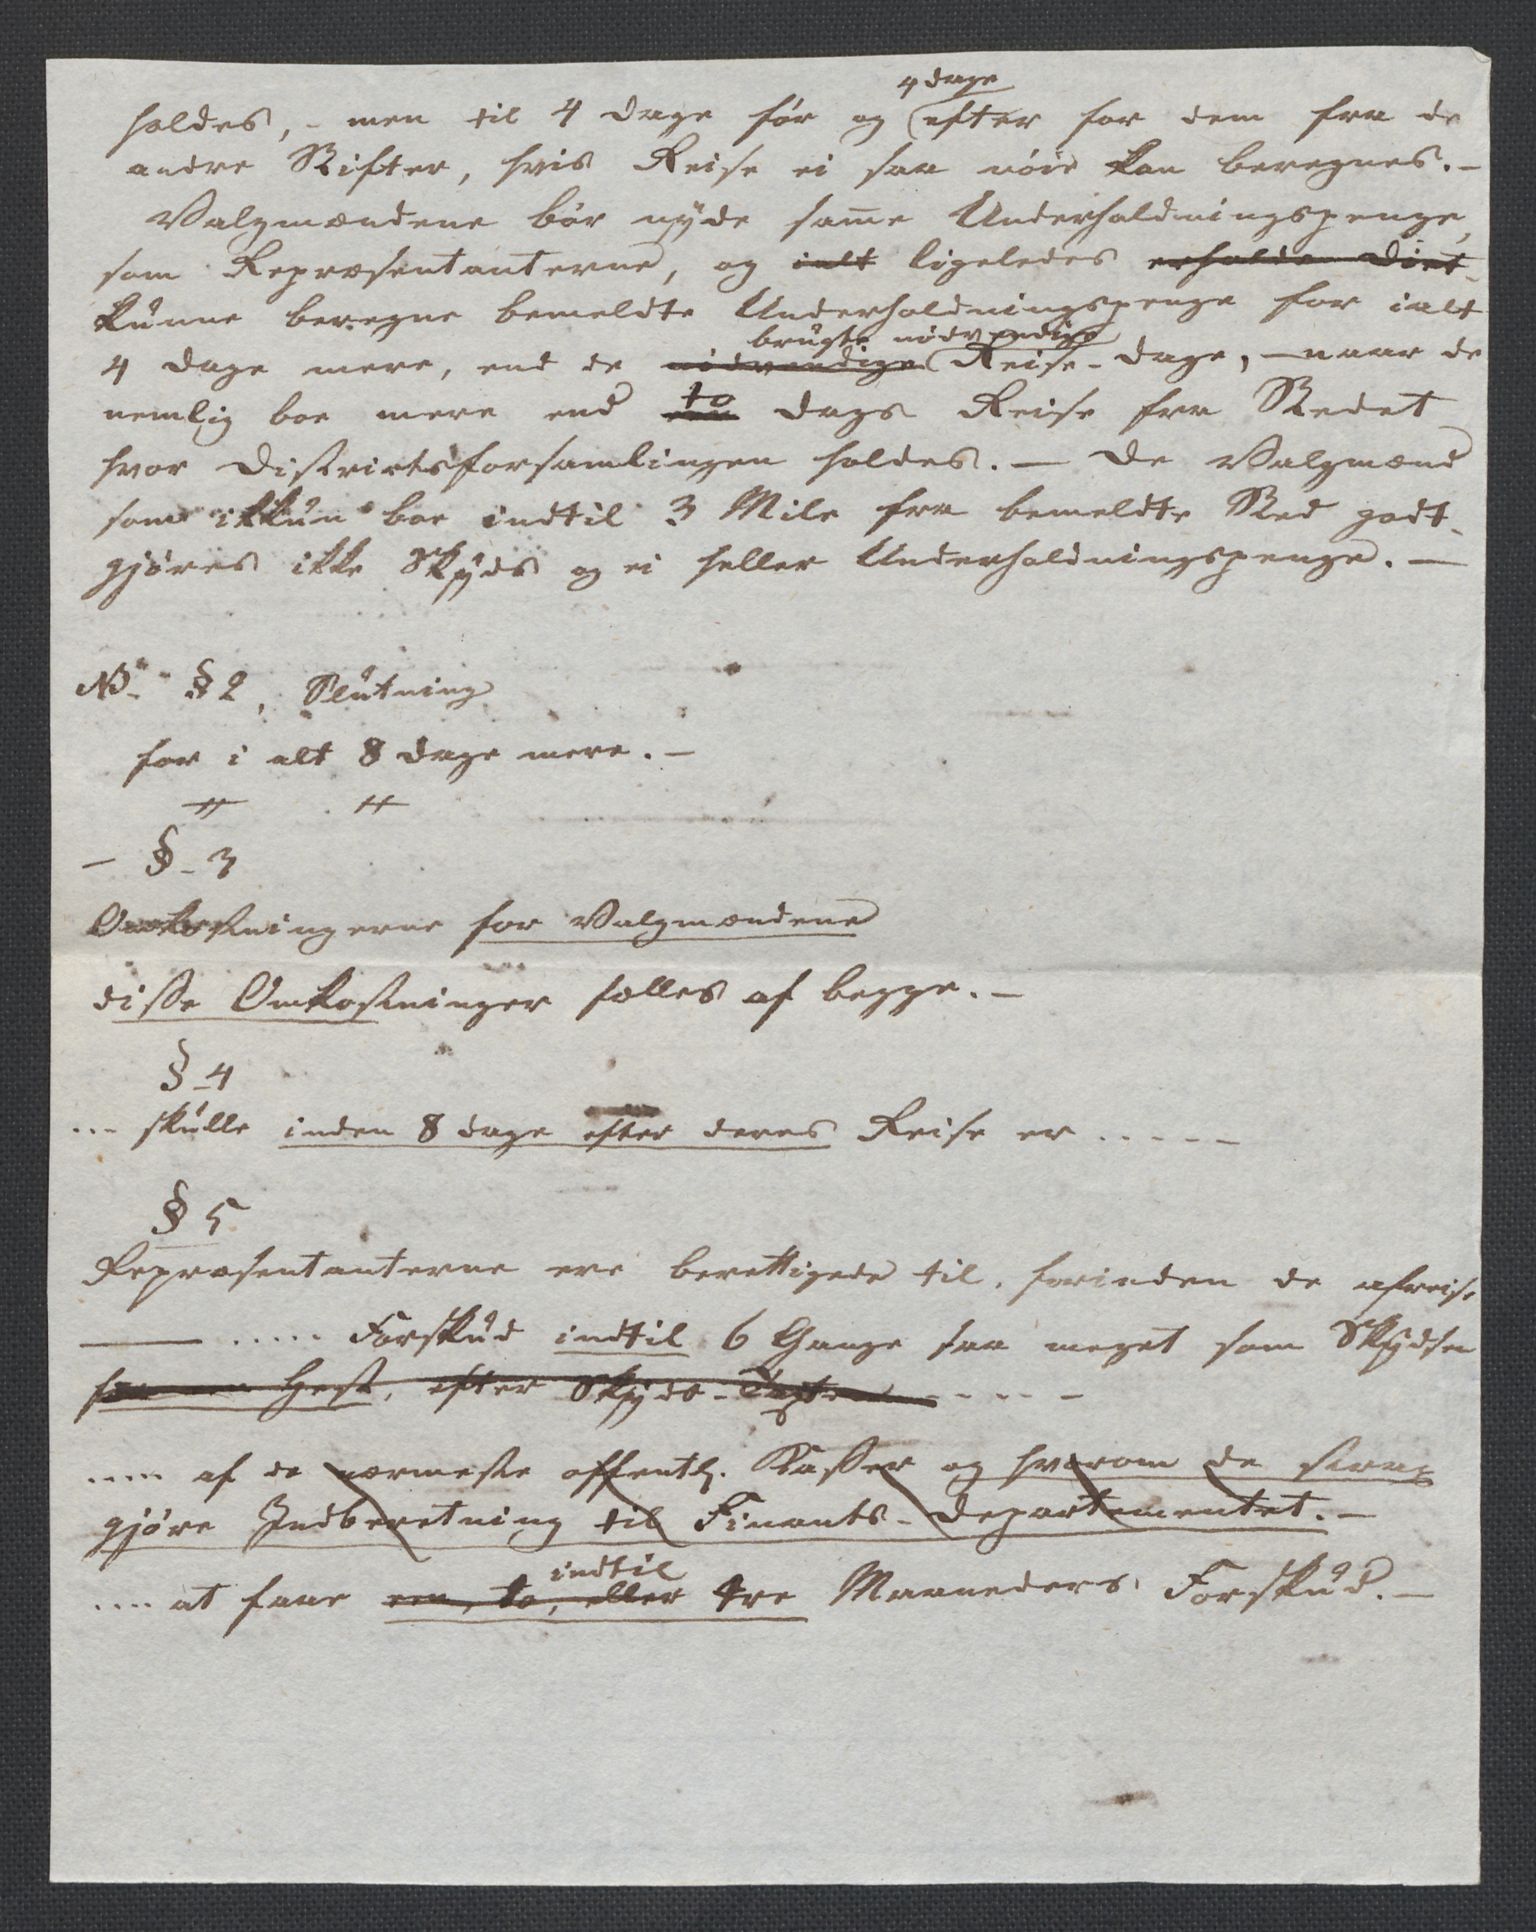 4 dage
holdes, - men til 4 dage før og efter for dem fra de
andre Stifter, hvis Reise ei saa nøie kan beregnes. -
Valgmændene bør nyde sam̅e Underholdningspenge,
som Repræsentanterne, og ialt ligeledes erholde Diet
kunne beregne bemeldte Underholdningspenge for ialt
brugte nødvendige
4 dage mere, end de nødvendige Reise-dage, - naar de
to
nemlig boe mere end een dags Reise fra Stedet
hvor Districtsforsamlingen holdes. - De Valgmænd
som ikkun boe indtil 3 Mile fra bemeldte Sted godt-
gjøres ikke Skyds og ei heller Underholdningspenge. -
NB. § 2, Slutning
for i alt 8 dage mere. -
- § - 3
Omkostningerne for Valgmændene
disse Omkostninger fælles af begge. -
§ - 4
... skulle inden 8 dage efter deres Reise er .....
§ 5
Repræsentanterne ere berettigede til, forinden de afreise
— ..... Forskud indtil 6 Gange saa meget som Skydsen
for een Hest, efter Skyds-Taxten - - - -
.... af de nærmeste offentl. Kasser og hvorom de strax
gjøre Indberetning til Finants-Departementet. -
indtil
.... at faae een, to, eller tre Maaneders Forskud. -